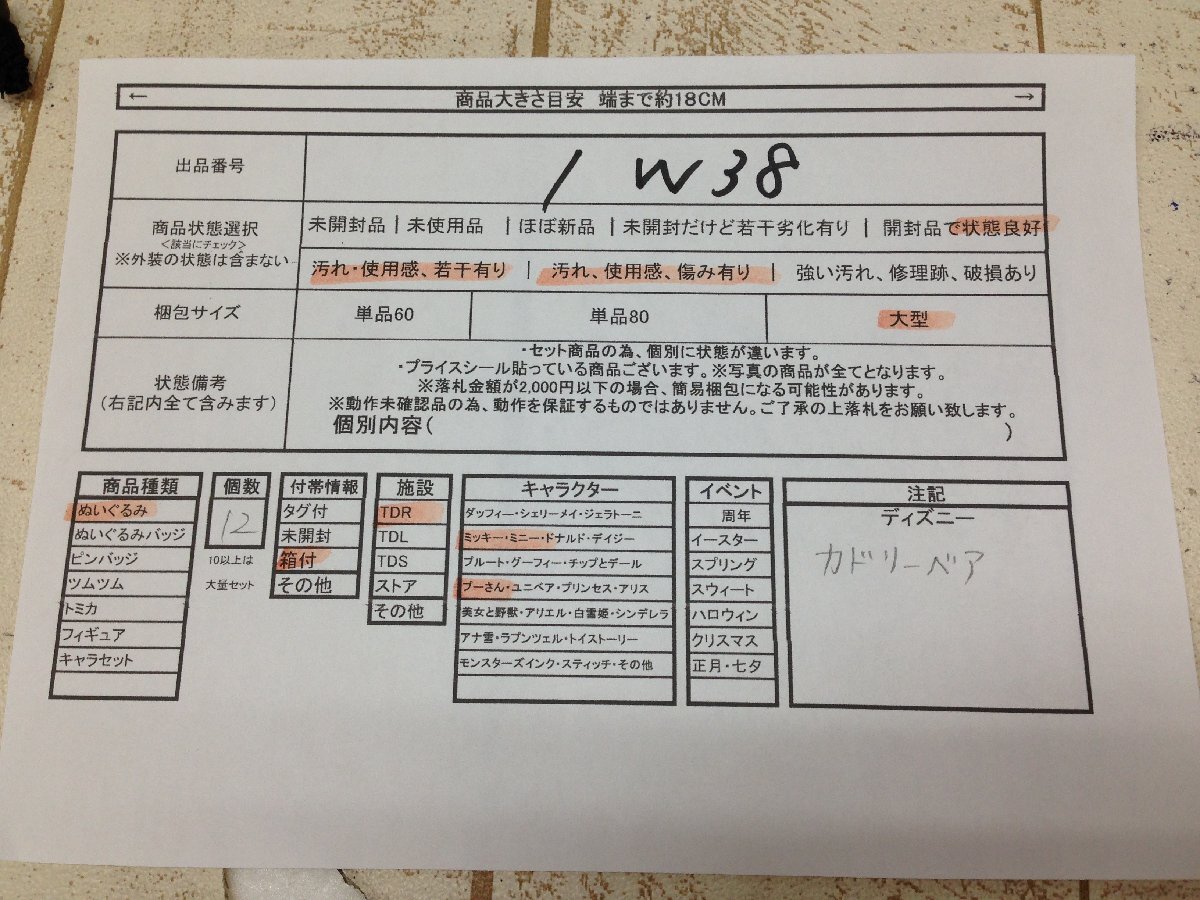 ← 商品大きさ目安 端まで約18CM →
出品番号
1 W38
商品状態選択
<該当にチェック>
※外装の状態は含まない
未開封品 | 未使用品 | ほぼ新品 | 未開封だけど若干劣化有り | 開封品で状態良好
汚れ・使用感、若干有り | 汚れ、使用感、傷み有り | 強い汚れ、修理跡、破損あり
梱包サイズ
単品60
単品80
大型
状態備考
(右記内全て含みます)
・セット商品の為、個別に状態が違います。
・プライスシール貼っている商品ございます。※写真の商品が全てとなります。
※落札金額が2,000円以下の場合、簡易梱包になる可能性があります。
※動作未確認品の為、動作を保証するものではありません。ご了承の上落札をお願い致します。
個別内容( )
商品種類
ぬいぐるみ
ぬいぐるみバッジ
ピンバッジ
ツムツム
トミカ
フィギュア
キャラセット
個数
12
10以上は
大量セット
付帯情報
タグ付
未開封
箱付
その他
施設
TDR
TDL
TDS
ストア
その他
キャラクター
ダッフィー・シェリーメイ・ジェラトーニ
ミッキー・ミニー・ドナルド・デイジー
プルート・グーフィー・チップとデール
プーさん・ユニベア・プリンセス・アリス
美女と野獣・アリエル・白雪姫・シンデレラ
アナ雪・ラプンツェル・トイストーリー
モンスターズインク・スティッチ・その他
イベント
周年
イースター
スプリング
スウィート
ハロウィン
クリスマス
正月・七夕
注記
ディズニー
カドリーベア